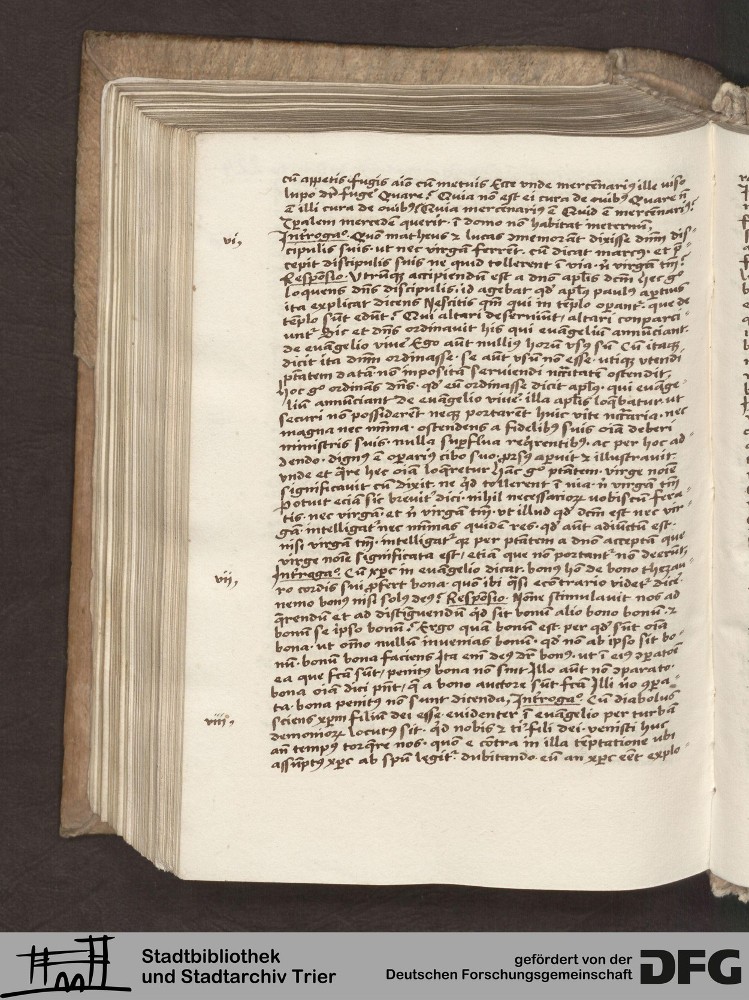 cū appetis fugis aīo cū metuis Ecce vnde mercēnariꝰ ille viso
lupo dr̄ fuge Quare? Quia nō est ei cura de ouibꝰ Quare n̄
ē illi cura de ouibꝰ Quia mercēnariꝰ ē Quid ē mercēnariꝰ?
Tp̄alem mercedē querit ī domo nō habitat ī eternū,
vi, Introgaº. Quō matheus ⁊ lucas ꝯmemorāt dixisse dn̄m dis-
cipulis suis ut nec virgā ferrēt, cū dicat marcꝰ et p̄-
cepit discipulis suis ne quid tollerent ī via n̄ virgā tm̄?
Respōsio. Vtrūqꝫ accipiendū est a dn̄o apl̄is dc̄m hec gº
loquens dn̄s discipulis id agebat qd̄ apl̄ꝰ paulꝰ aptius
ita explicat dicens Nescitis qm̄ qui in tēplo opant que de
tēplo sūt edūt? Qui altari deseruiūt altari conparci-
unt Sic et dn̄s ordinauit his qui euāgeliū annūciant
de euāgelio viue Ego aūt nulliꝰ horū vsꝰ sū Cū itaqꝫ
dicit ita dn̄m ordinasse se aūt vsū nō esse utiqꝫ vtendi
ptātem datā nō impositā seruiendi nc̄citatē ostendit,
hoc gº ordinās dn̄s qd̄ eū ordinasse dicit apl̄ꝰ qui euāge-
liū annūciant de euāgelio viue illa apl̄is loqbatur ut
securi nō possiderēt neqꝫ portarēt huic vite nccaria nec
magna nec mīma ostendens a fidelibꝰ suis oīa deberi
ministris suis nulla supflua reqrentibꝰ ac per hoc ad-
dendo dignꝰ ē opariꝰ cibo suo prsꝰ apuit ⁊ illustrauit
vnde et qre hec oīa loqretur hāc gº ptātem virge noīe
significauit cū dixit ne qd tollerent ī uia n̄ virgā tm̄
Potuit eciā sic breuit dici nihil necessarioꝝ uobiscū fera-
tis nec virgā et n̄ virgā tm̄ ut illud qd̄ dc̄m est nec vir-
gā intelligat nec mīmas quidē res qd̄ aūt adiūctū est
nisi virgā tm̄ intelligat qꝫ per ptātem a dn̄o acceptā que
virge noīe significata est, etiā que nō portant nō deerūt,
vii, Introgaº Cū xp̄c in euāgelio dicat bonꝰ hō de bono thezau-
ro cordis sui pfert bona quō ibi qsi econtrario videt dice
nemo bonꝰ nisi solꝰ deꝰ? Respōsio. None stimulauit nos ad
qrendū et ad distīguendū qd̄ sit bonū alio bono bonū ⁊
bonū se ipso bonū? Ergo quā bonū est per qd̄ sūt oīa
bona ut oīno nullū inuenias bonū qd̄ nō ab ipso sit bo-
nū bonū bona faciens Ita em̄ deꝰ dr̄ bonꝰ ut ī eiꝰ ꝯpatōe
ea que fc̄a sūt, penitꝰ bona nō sint Illo aūt nō ꝯparato
bona oīa dici pn̄t, qa a bono auctore sūt fc̄a Illi ūo ꝯpa-
ta bona penitꝰ nō sunt dicenda, Introgaº Cū diabolus
viii, sciens xp̄m filiū dei esse euidenter ī euāgelio per turbā
demonioꝝ locutꝰ sit qd nobis ⁊ ti fili dei venisti huc
an̄ tempꝰ torqre nos quō e cōtra in illa tēptatione ubi
assūptꝰ xp̄c ab spū legit dubitando eū an xp̄c eēt explo-
Stadtbibliothek
und Stadtarchiv Trier
gefördert von der
Deutschen Forschungsgemeinschaft
DFG